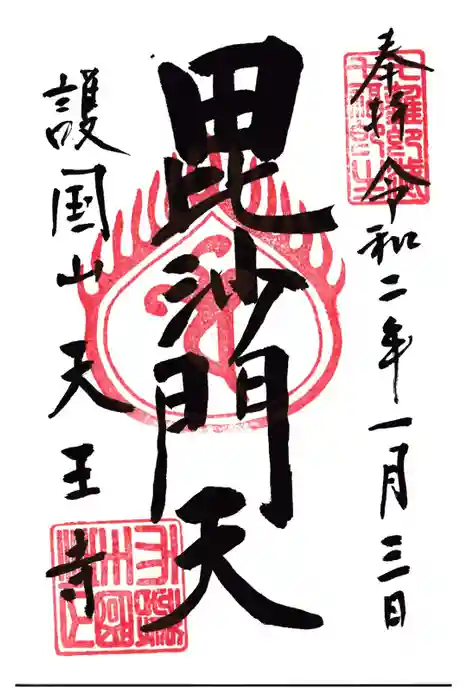 奉拝 令和二年一月三日
毘沙門天
護国山 天王寺